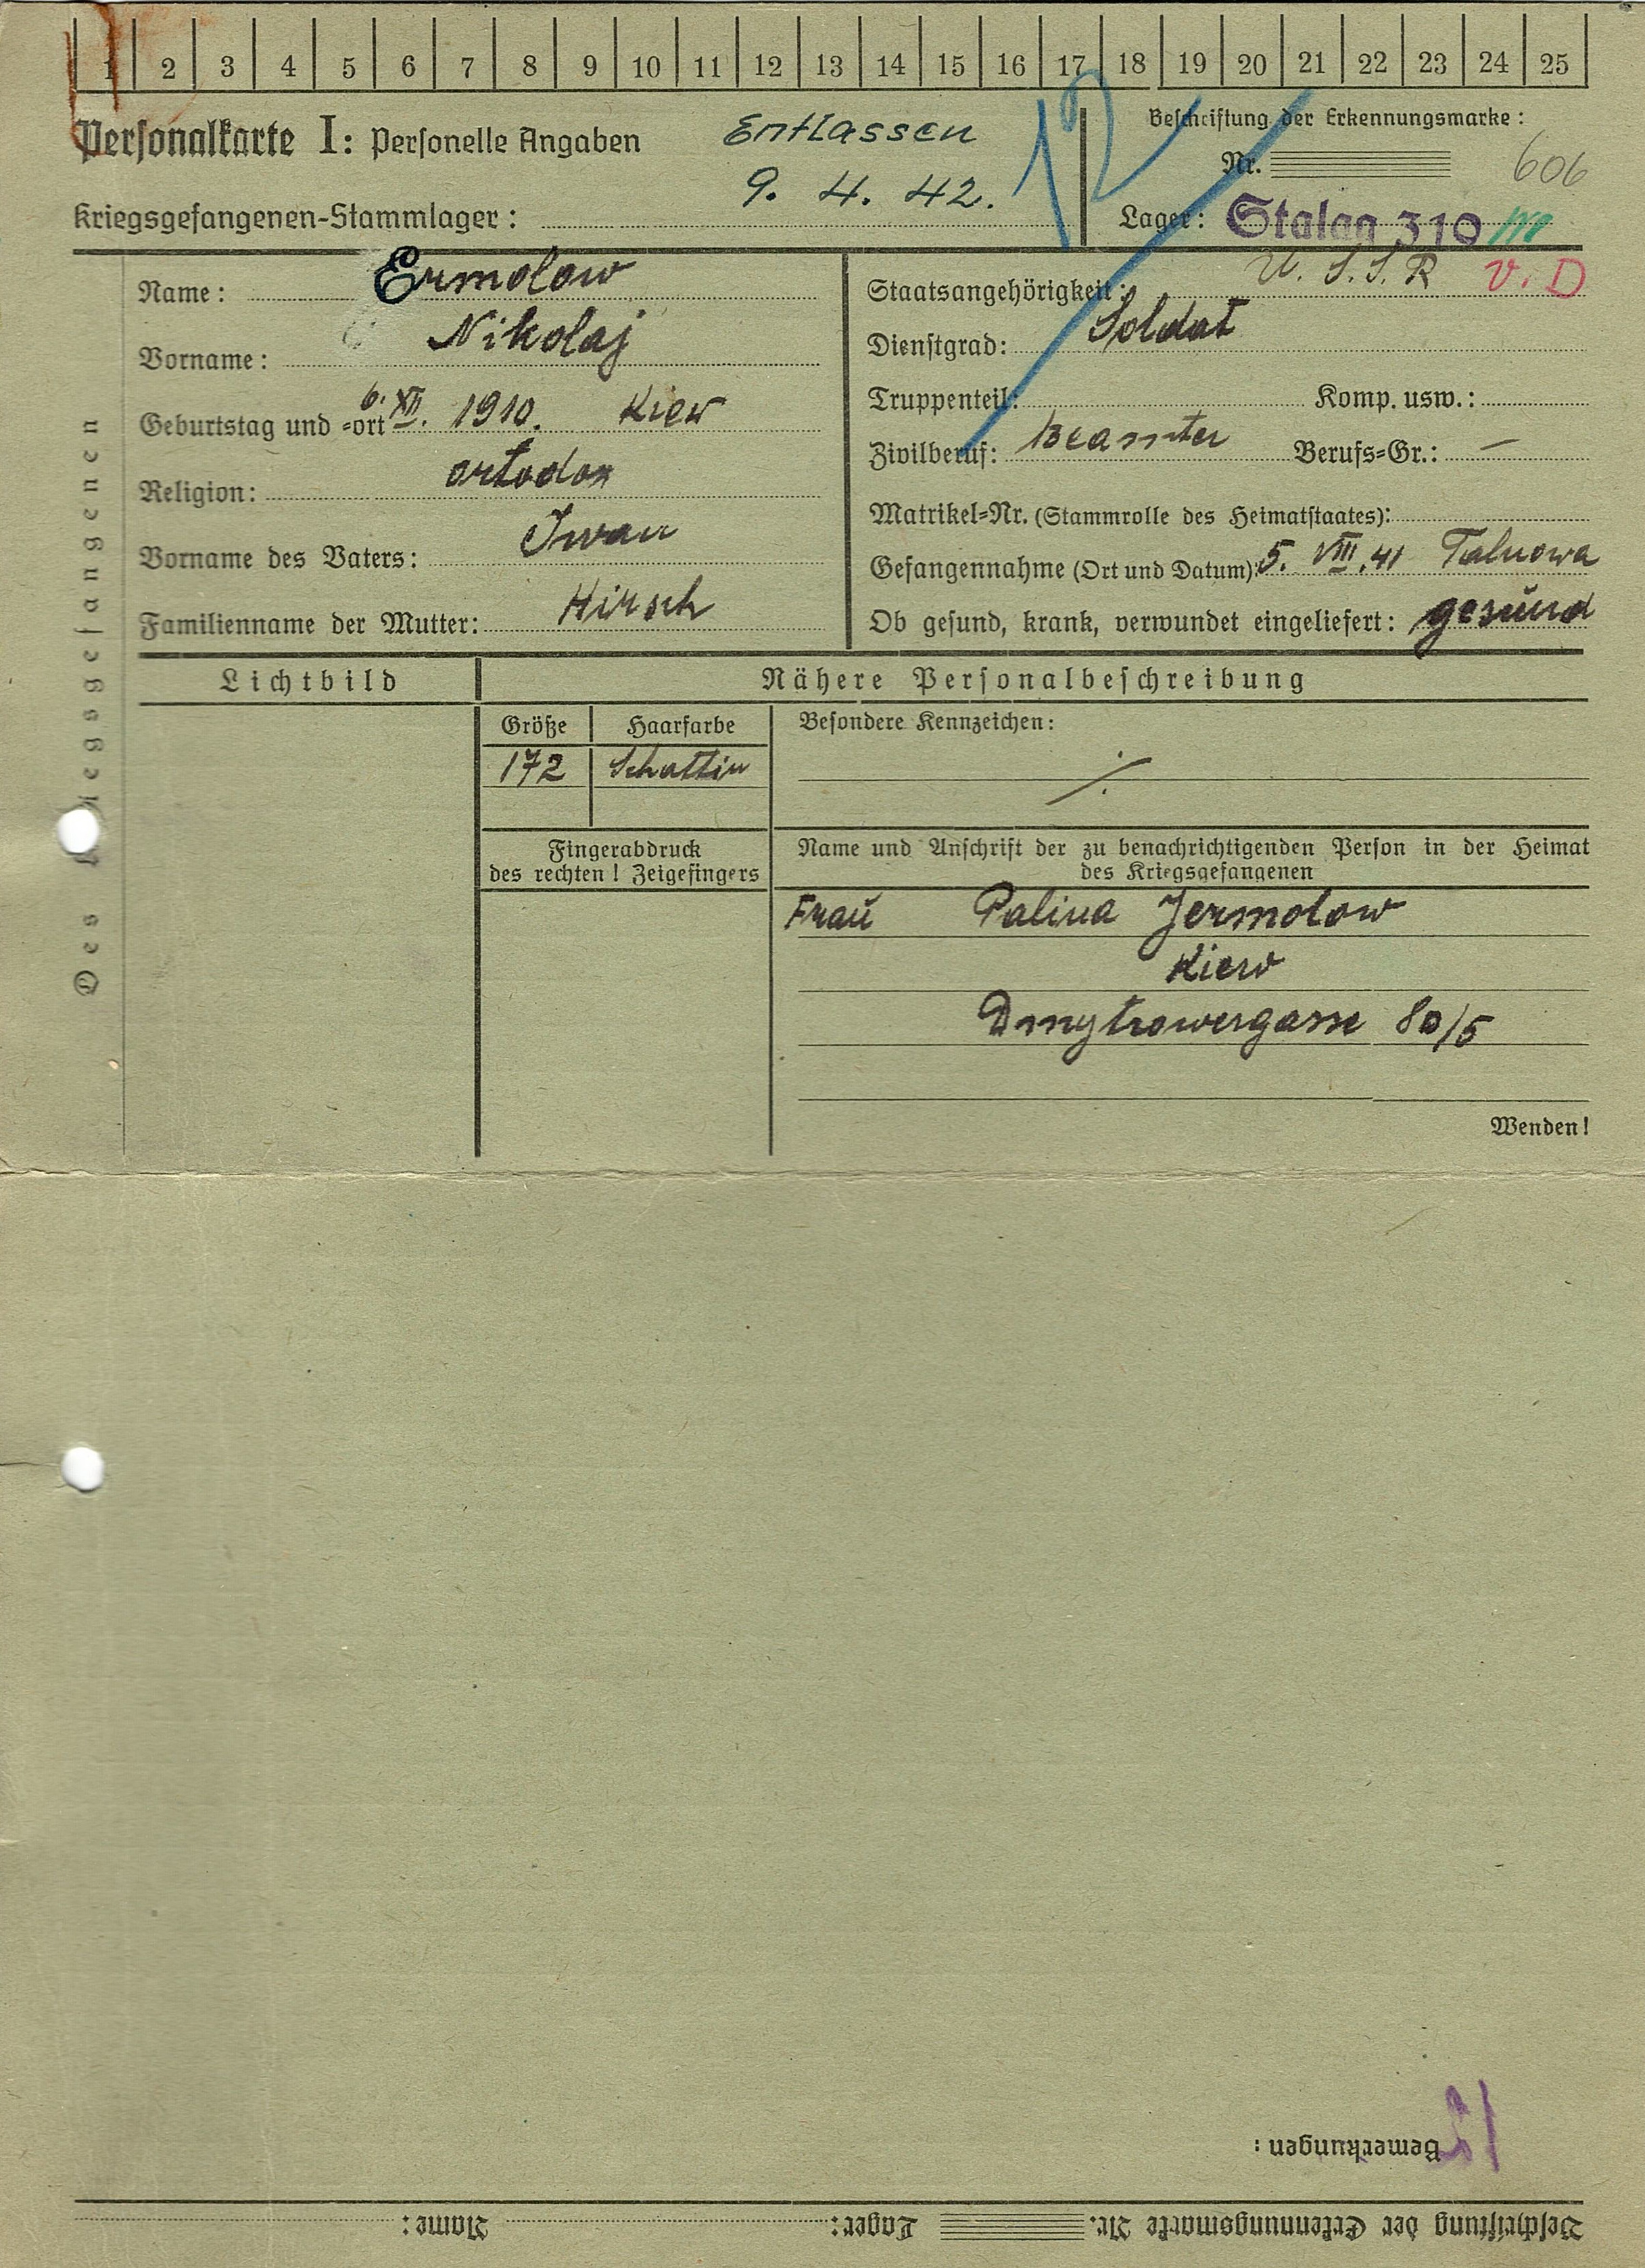 1 2 3 4 5 6 7 8 9 10 11 12 13 14 15 16 17 18 19 20 21 22 23 24 25
Personalkarte I: Personelle Angaben
Entlassen
9. 4. 42.
12
Kriegsgefangenen-Stammlager:
Beschriftung der Erkennungsmarke:
Nr. 606
Lager: Stalag 310
Des Kriegsgefangenen
Name: Ermolow
Vorname: Nikolaj
Geburtstag und -ort 6. XII. 1910. Kiew
Religion: ortodox
Vorname des Vaters: Iwan
Familienname der Mutter: Hirsch
Staatsangehörigkeit: U.S.S.R V.D
Dienstgrad: Soldat
Truppenteil: Komp. usw.:
Zivilberuf: Beamter Berufs-Gr.: —
Matrikel-Nr. (Stammrolle des Heimatstaates):
Gefangennahme (Ort und Datum): 5. VIII. 41 Talnowa
Ob gesund, krank, verwundet eingeliefert: gesund
Lichtbild
Nähere Personalbeschreibung
Größe Haarfarbe
172 Schattin
Besondere Kennzeichen:
Fingerabdruck
des rechten! Zeigefingers
Name und Anschrift der zu benachrichtigenden Person in der Heimat
des Kriegsgefangenen
Frau Palina Jermolow
Kiew
Dmytrowergasse 80/5
Wenden!
Bemerkungen:
12
Beschriftung der Erkennungsmarke Nr. Lager: Name: